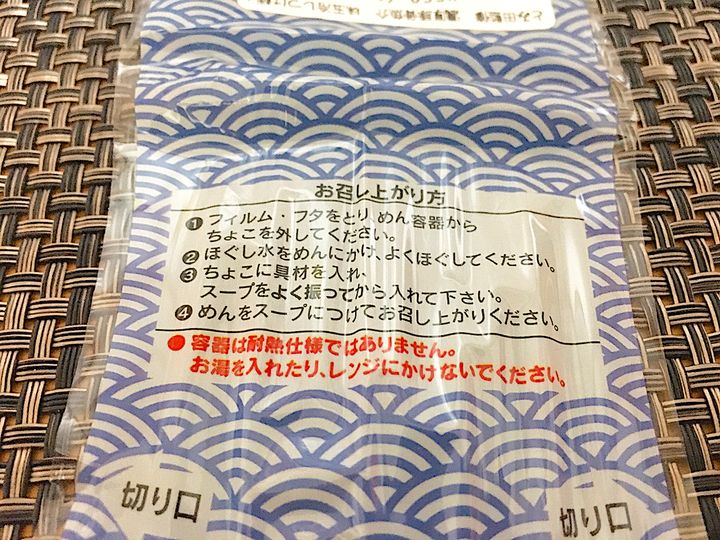 とみ田監修
お召し上がり方
❶ フィルム・フタをとり、めん容器から
ちょこを外してください。
❷ ほぐし水をめんにかけ、よくほぐしてください。
❸ ちょこに具材を入れ、
スープをよく振ってから入れて下さい。
❹ めんをスープにつけてお召し上がりください。
● 容器は耐熱仕様ではありません。
お湯を入れたり、レンジにかけないでください。
切り口
切り口